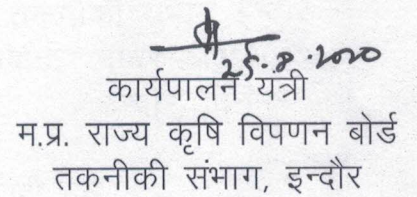 25.8.2020
कार्यपालन यत्री
म.प्र. राज्य कृषि विपणन बोर्ड
तकनीकी संभाग, इन्दौर